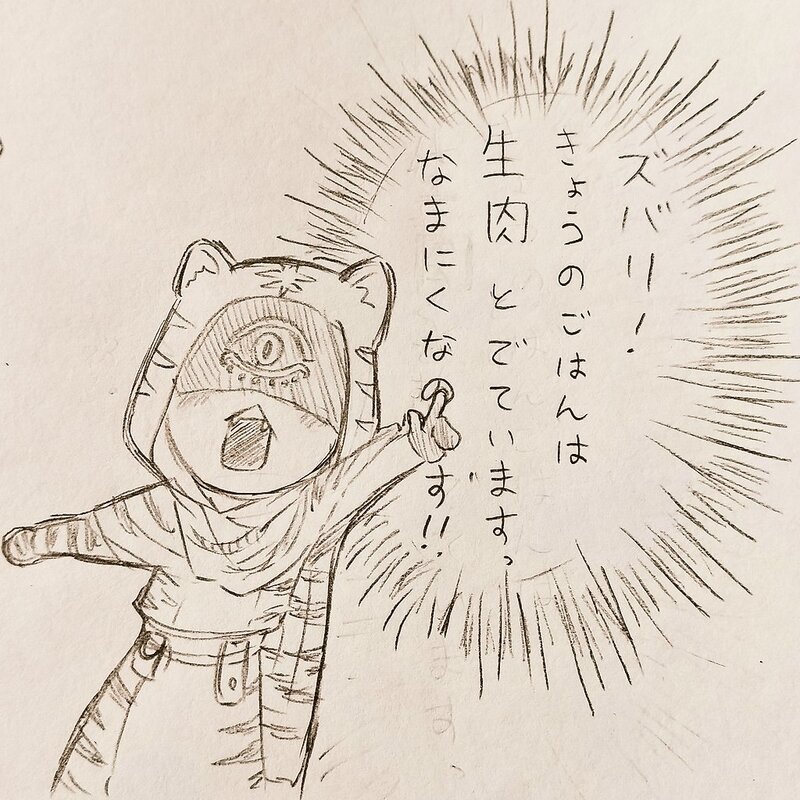 ズバリ!
きょうのごはんは
生肉とでていますっ
なまにくなのです!!